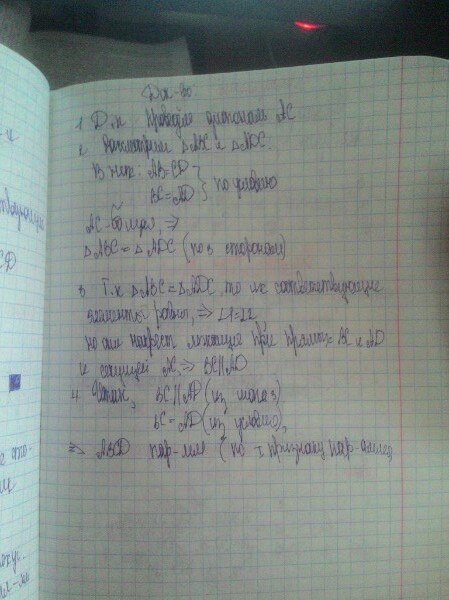 Док-во:
1 Д.п проведём диагональ AC
2 Рассмотрим △ABC и △ADC.
В них: AB=CD
BC=AD } по условию
AC-общая, ⇒
△ABC=△ADC (по 3 сторонам)
3 Т.к △ABC=△ADC, то их соответствующие
элементы равны, ⇒ ∠1=∠2
но они накрест лежащие при прямых BC и AD
и секущей AC, ⇒ BC||AD
4. Итак, BC||AD (из п.3)
BC=AD (из условия),
⇒ ABCD пар-мм (по I признаку пар-
CD